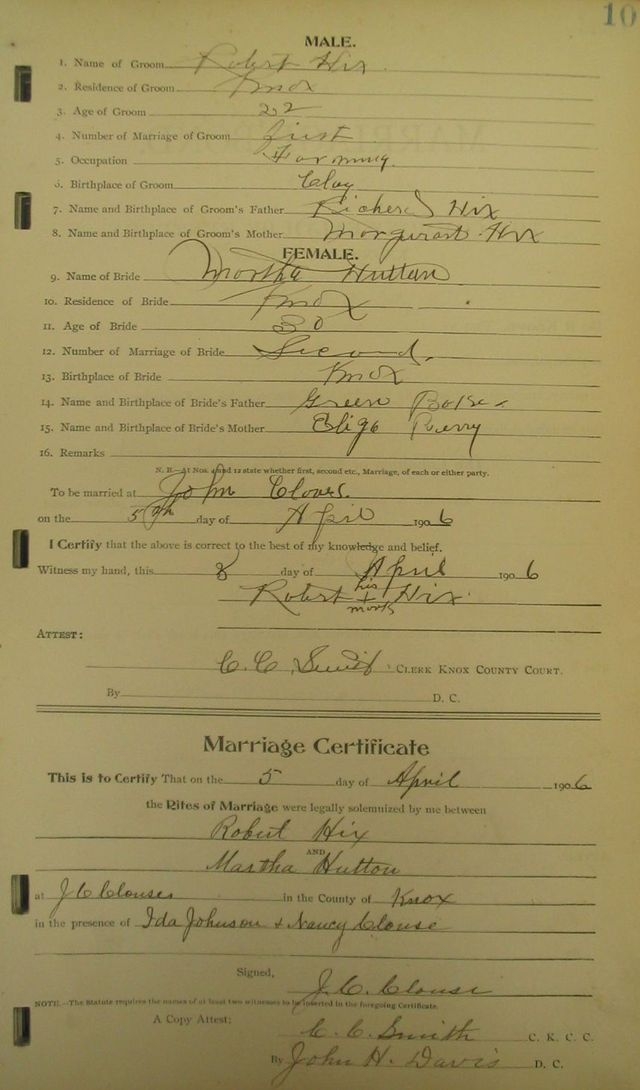 10
MALE.
1. Name of Groom Robert Hix
2. Residence of Groom Knox
3. Age of Groom 22
4. Number of Marriage of Groom first
5. Occupation Farming
6. Birthplace of Groom Clay
7. Name and Birthplace of Groom's Father Richard Hix
8. Name and Birthplace of Groom's Mother Margurart Hix
FEMALE.
9. Name of Bride Martha Hutton
10. Residence of Bride Knox
11. Age of Bride 30
12. Number of Marriage of Bride Second.
13. Birthplace of Bride Knox
14. Name and Birthplace of Bride's Father Green
15. Name and Birthplace of Bride's Mother
16. Remarks
N. B.—At Nos. 4 and 12 state whether first, second etc., Marriage, of each or either party.
To be married at John
on the 5th day of April 1906
I Certify that the above is correct to the best of my knowledge and belief.
Witness my hand, this 3 day of April 1906
Robert his x mark Hix.
ATTEST:
C. C. Smith, CLERK KNOX COUNTY COURT.
By D. C.
Marriage Certificate
This is to Certify That on the 5 day of April 1906
the Rites of Marriage were legally solemnized by me between
Robert Hix
AND
Martha Hutton
at J C Clouses in the County of Knox
in the presence of Ida Johnson + Nancy Clouse
Signed, J. C. Clouse
NOTE.—The Statute requires the names of at least two witnesses to be inserted in the foregoing Certificate.
A Copy Attest: C. C. Smith C. K. C. C.
By John H. Davis D. C.